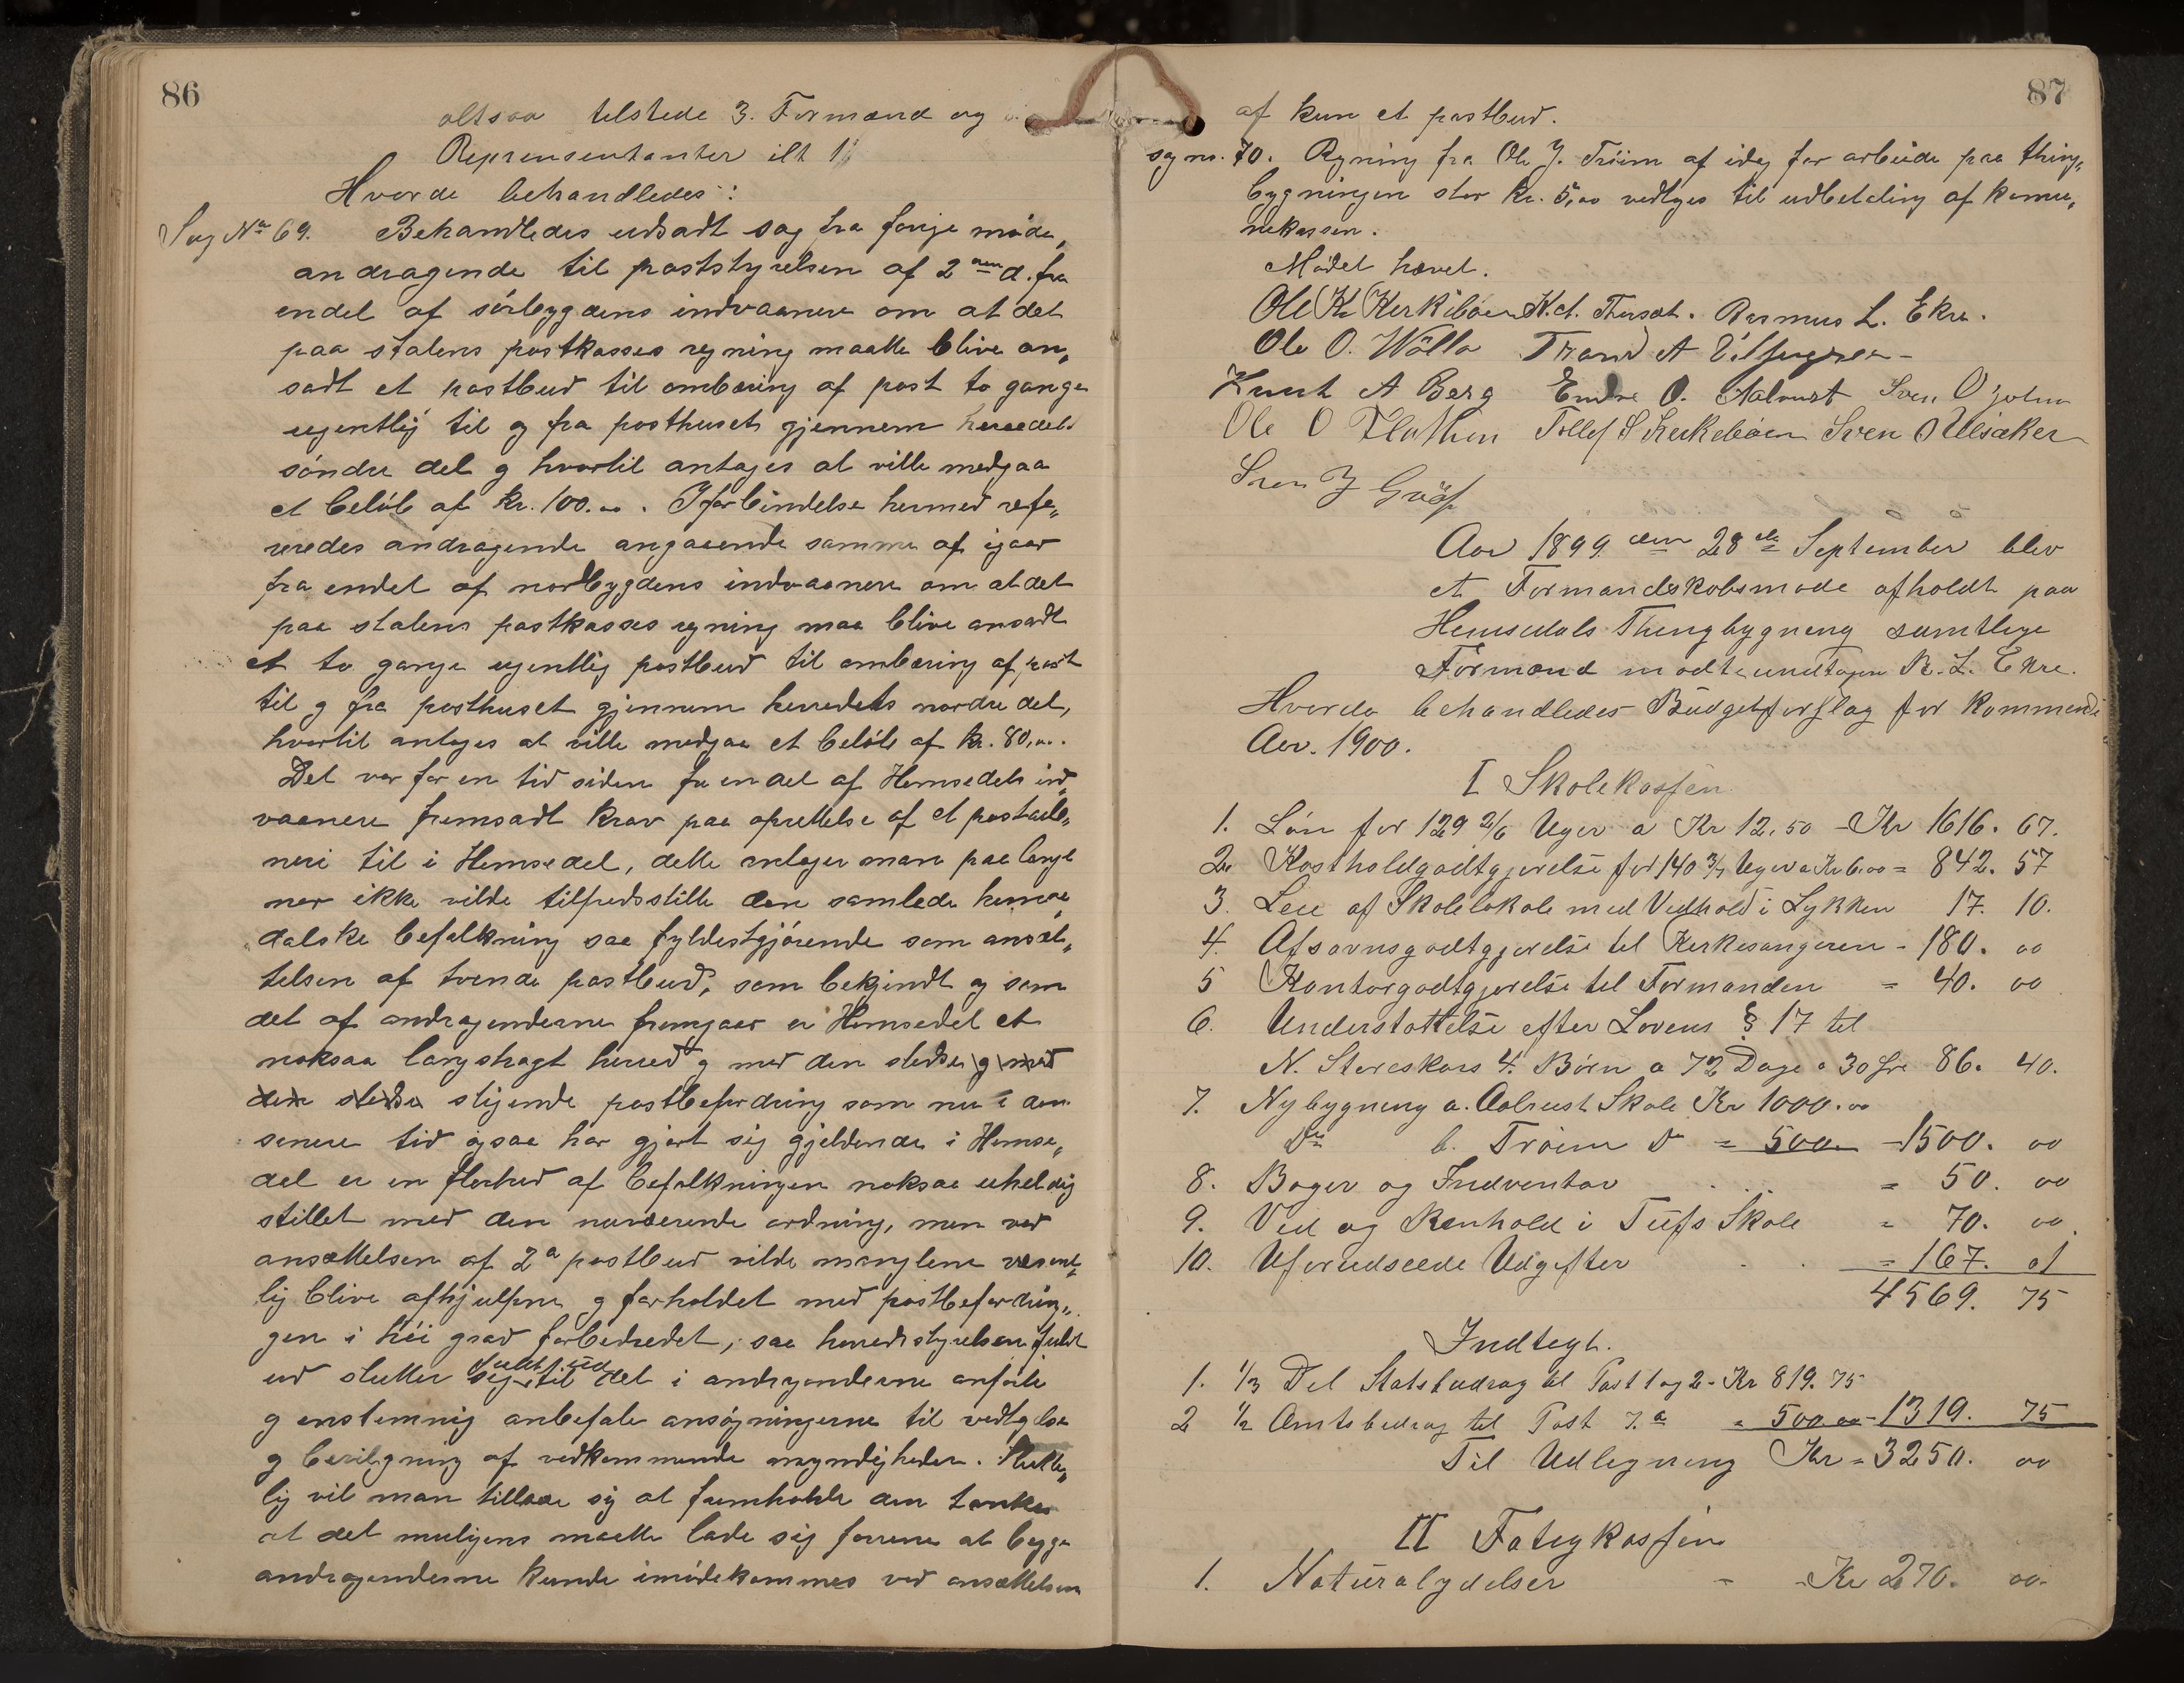 86
altsaa tilstede 3. Formænd og
Reprensentanter ilt 11
Hvorda behandledes:
Sag No 69. Behandledes udsadt sag fra forrige møde,
andragende til poststyrelsen af 2den d. fra
endel af sørbygdens indvaanere om at det
paa statens postkasses regning maatte blive an„
sadt et postbud til ombæring af post to gange
ugentlig til og fra posthuset gjennem herredets
søndre del og hvortil antages at ville medgaa
et beløb af kr. 100.00. I forbindelse hermed refe„
reredes andragende angaaende samme af igaar
fra endel af nordbygdens indvaanere om at det
paa statens postkasses regning maa blive ansadt
et to gange ugentlig postbud til ombæring af post
til og fra posthuset gjennem herredets nordre del,
hvortil antages at ville medgaa et beløb af kr. 80,00.
Det var for en tid siden fra en del af Hemsedals ind„
vaanere fremsadt krav paa oprettelse af et postaab„
neri til i Hemsedal, dette antager man paa langt
nær ikke vilde tilfredsstille den samlede hemse„
dalske befolkning saa fyldestgjørende som ansæt„
telsen af tvende postbud, som bekjendt og som
det af andragenderne fremgaar er Hemsedal et
noksaa langstragt herred og med den stedse og med
den stedse stigende postbefordring som nu i den
senere tid ogsaa har gjort sig gjeldende i Hemse„
dal er en flerhed af befolkningen noksaa uheldig
stillet med den nuværende ordning, men ved
ansættelsen af 2a postbud vilde manglene væsent„
lig blive afhjulpne og forholdet med postbefordrin„
gen i høi grad forbedredet, saa herredsstyrelsen fuldt
ud slutter sig til det i andragenderne anførte
og enstemnig anbefale ansøgningerne til vedtagelse
og bevilgning af vedkommende myndigheder. Slutte„
lig vil man tillade sig at fremholde den tanke
at det muligens maatte lade sig forene at begge
andragenderne kunde imødekommes ved ansættelsen
87
af kun et postbud.
sag no. 70. Regning fra Ole J. Trøim af idag for arbeide paa thing„
bygningen stor kr. 5,00 vedtages til udbetaling af komu„
nekassen.
Mødet hævet.
Ole K Kirkebøen K. A. Thorset. Rasmus L. Ekre.
Ole O. Wølla Trond A
Knut A Berg Endre O. Aalrust Sven O
Ole O Flathen Tollef S Kirkebøen Sven O Ulsaker
Sven J Grøt
Aar 1899 den 28de September blev
et Formandskabsmøde afholdt paa
Hemsedals Thingbygning samtlige
Formænd mødte undtagen R. L. Ekre.
Hvorda behandledes Budgetforslag for kommende
Aar. 1900.
I Skolekassen
1. Løn for 129 2/6 Uger a Kr 12,50 - Kr 1616. 67.
2. Kostholdgodtgjørelse for 140 3/7 Uger a Kr 6.00 = 842. 57
3. Leie af Skolelokale med Vedhold i Lykken 17. 10.
4. Afsavnsgodtgjørelse til Kirkesangeren - 180. 00
5 Kontorgodtgjørelse til Formanden = 40. 00
6. Understøttelse efter Lovens § 17 til
N. Storeskars 4 Børn a 72 Dage a 30 Øre 86. 40.
7. Nybygning a. Aalrust Skole Kr 1000.00
Do b. Trøim Do = 500 - 1500. 00
8. Bøger og Indventar = 50. 00
9. Ved og Renhold i Tufs Skole = 70. 00
10. Uforudseede Udgifter = 167. 01
4569. 75
Indtegt.
1. 1/3 Del Statsbidrag til Post 1 og 2 - Kr 819. 75
2 1/2 Amtsbidrag til Post 7.a = 500.00 - 1319. 75
Til Udlegning Kr = 3250. 00
II Fatigkassen
1. Naturalydelser - Kr 270. 00